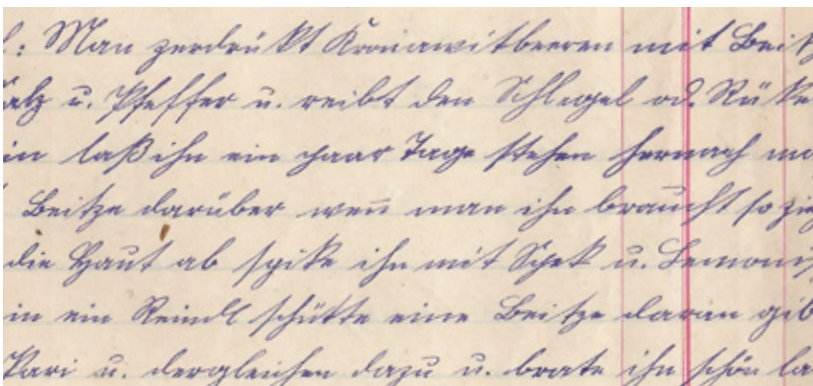 l: Man zerdrükt Kronawitbeeren mit Beitz
alz u. Pfeffer u. reibt den Schlegel od. Rüke
in laß ihn ein paar Tage stehen hernach ma
Beitze darüber weñ man ihn braucht so zie
die Haut ab spike ihn mit Spek u. Lemonis
in ein Reindl schütte eine Beitze daran gib
Kari u. dergleichen dazu u. brate ihn schön la